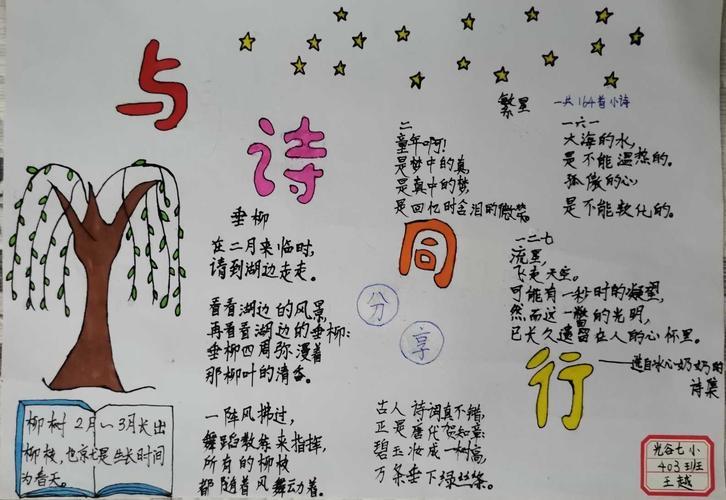 与
诗
同
行
分
享
垂柳
在二月来临时,
请到湖边走走。
看看湖边的风景,
再看看湖边的垂柳:
垂柳四周弥漫着
那柳叶的清香。
一阵风拂过,
舞蹈教练来指挥,
所有的柳枝
都随着风舞动着。
柳树2月~3月长出
柳枝,也就是生长时间
为春天。
繁星
一共164首小诗
二
童年啊!
是梦中的真,
是真中的梦,
是回忆时含泪的微笑。
一六一
大海的水,
是不能温热的。
孤傲的心,
是不能软化的。
一二七
流星,
飞走天空。
可能有一秒时的凝望,
然而这一瞥的光明,
已长久遗留在人的心怀里。
——选自冰心奶奶的
诗集
古人诗词真不错,
正是唐代贺知章:
碧玉妆成一树高,
万条垂下绿丝绦。
光谷七小
403班
王越